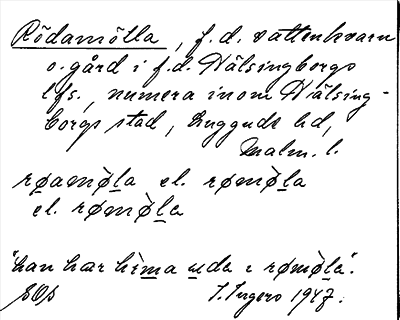 Rödamölla, f.d. vattenkvarn
o. gård i f.d. Hälsingborgs
lfs., numera inom Hälsing-
borgs stad, Luggude hd,
Malm. l.
røamø̀la el. rømø̀la
el. rømø̀la
"han har hèma uda i rømø̀la".
SOs I. Ingers 1947.